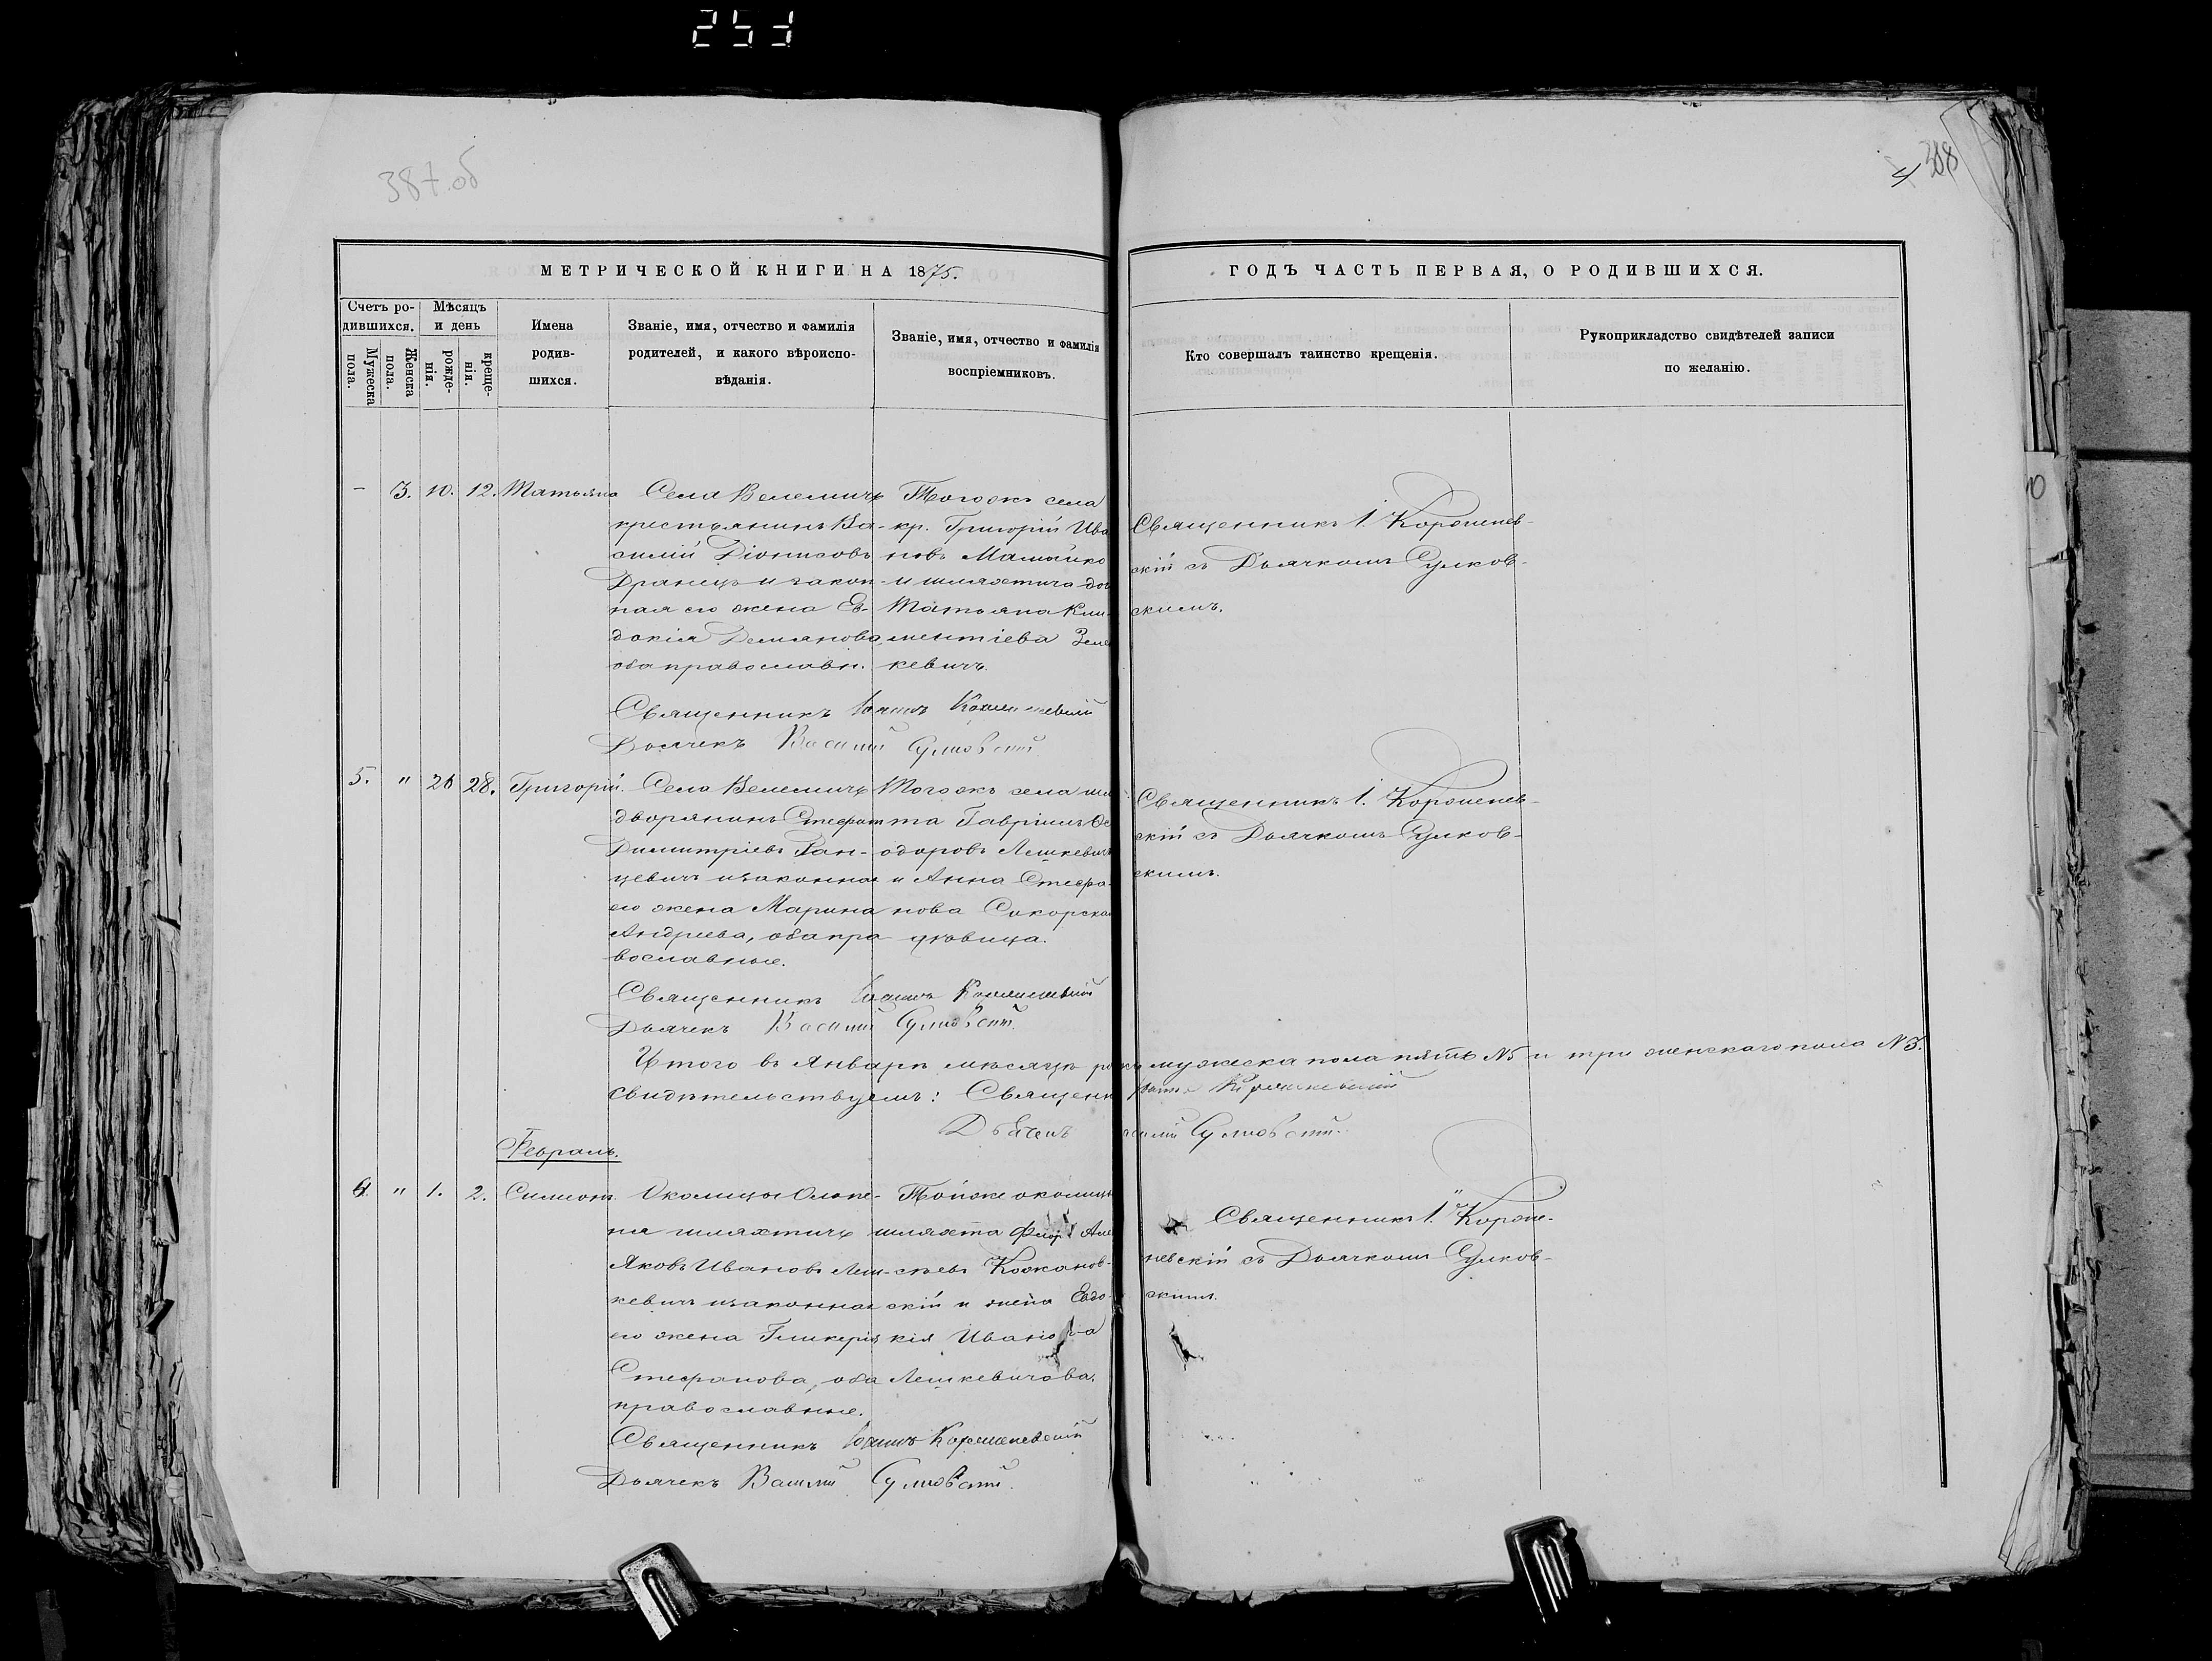 253
387.об
4
МЕТРИЧЕСКОЙ КНИГИ НА 1875.
ГОДЪ ЧАСТЬ ПЕРВАЯ, О РОДИВШИХСЯ.
Счетъ ро-
дившихся.
Мужеска
пола.
Женска
пола.
Мѣсяцъ
и день
рожде-
нія.
креще-
нія.
Имена
родив-
шихся.
Званіе, имя, отчество и фамилія
родителей, и какого вѣроиспо-
вѣданія.
Званіе, имя, отчество и фамилія
воспріемниковъ.
Кто совершалъ таинство крещенія.
Рукоприкладство свидѣтелей записи
по желанію.
- 3. 10. 12. Татьяна
Села Велемичъ
крестьянинъ Ва-
силій Діонисовъ
Дранецъ и закон-
ная его жена Ев-
докія Демянова
оба православн.
Тогожъ села
кр. Григорій Ива
новъ
и шляхтича доч
Татьяна Кли-
ментіева
кевичъ.
Священникъ І. Корженев-
скій съ Дьячкомъ Сулков-
скимъ.
Священникъ Іоаннъ Корженевскій
Дьячекъ Василій Сулковскій
5. " 26 28. Григорій.
Села Велемичъ
дворянинъ Стефан
Димитріевъ Ван-
цевичъ и законная
его жена Марина
Андреева, оба пра
вославные.
Тогожъ села шля
хта Гавріилъ Ѳе
одоровъ Лешкевичъ
и Анна Стефа-
нова Сикорская
дѣвица.
Священникъ І. Корженев-
скій съ Дьячкомъ Сулков-
скимъ.
Священникъ Іоаннъ Корженевскій
Дьячекъ Василій Сулковскій.
Итого въ Январѣ мѣсяцѣ мужеска пола пять №5 и три женскаго пола №3.
Свидѣтельствуемъ: Священн Корженевскій
Дьячекъ Сулковскій.
Февраль.
6. " 1. 2. Симеонъ.
Околицы Ольпе-
ня шляхтичъ
Яковъ Ивановъ Леш-
кевичъ и законная
его жена Гликерія
Стефанова, оба
православные.
Тойже околицы
шляхта Але
сѣевъ Кожанов-
скій и жена Евдо-
кія Иванова
Лешкевичова.
Священникъ І. Корже-
невскій съ Дьячкомъ Сулков-
скимъ.
Священникъ Іоаннъ Корженевскій
Дьячекъ Василій Сулковскій.